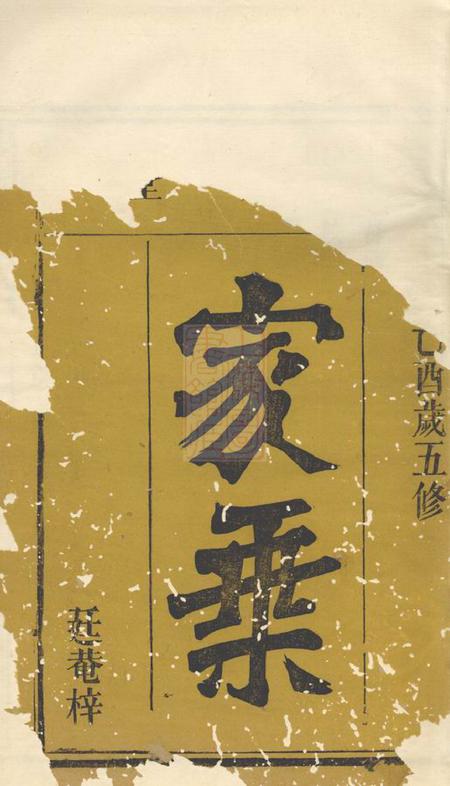 乙酉歲五修
家乘
莛菴梓